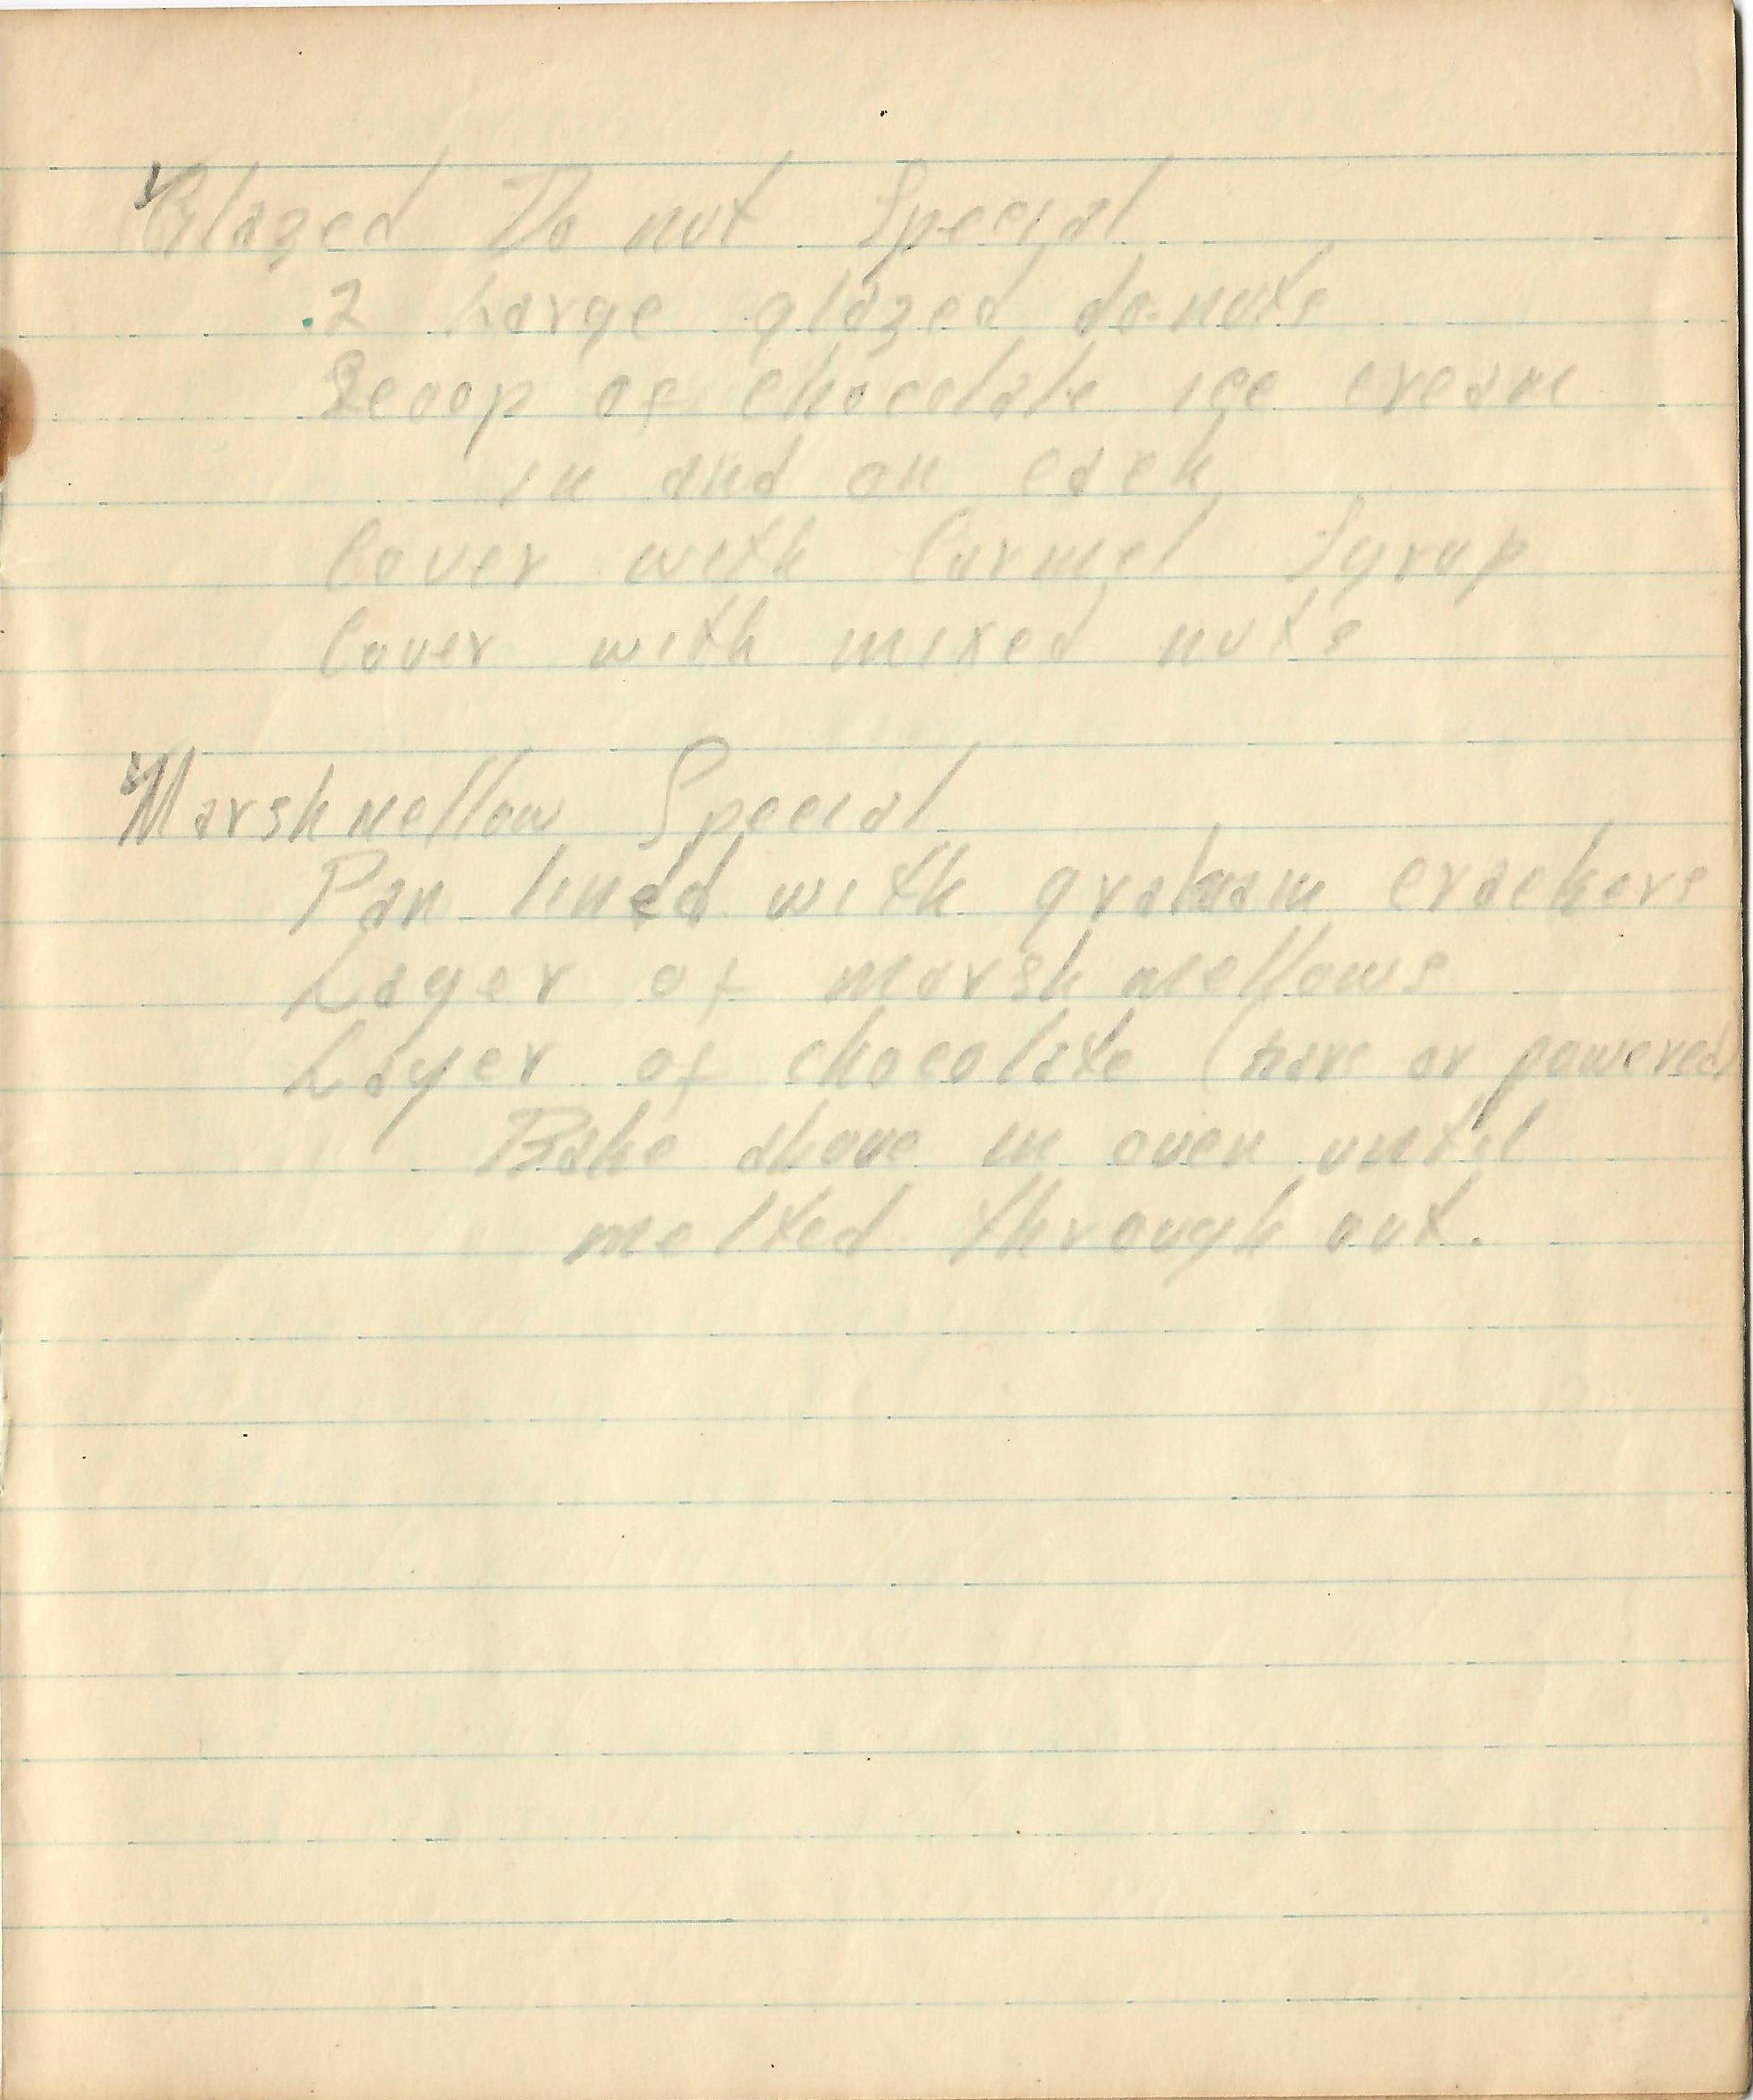 Glazed Do nut Special
2 Large glazed do-nuts
Scoop of chocolate ice cream
in and on each
Cover with Carmel Syrup
Cover with mixed nuts
Marshmellow Special
Pan lined with graham crackers
Layer of marsh mellows
Layer of chocolate (bars or powered)
Bake above in oven until
melted through out.